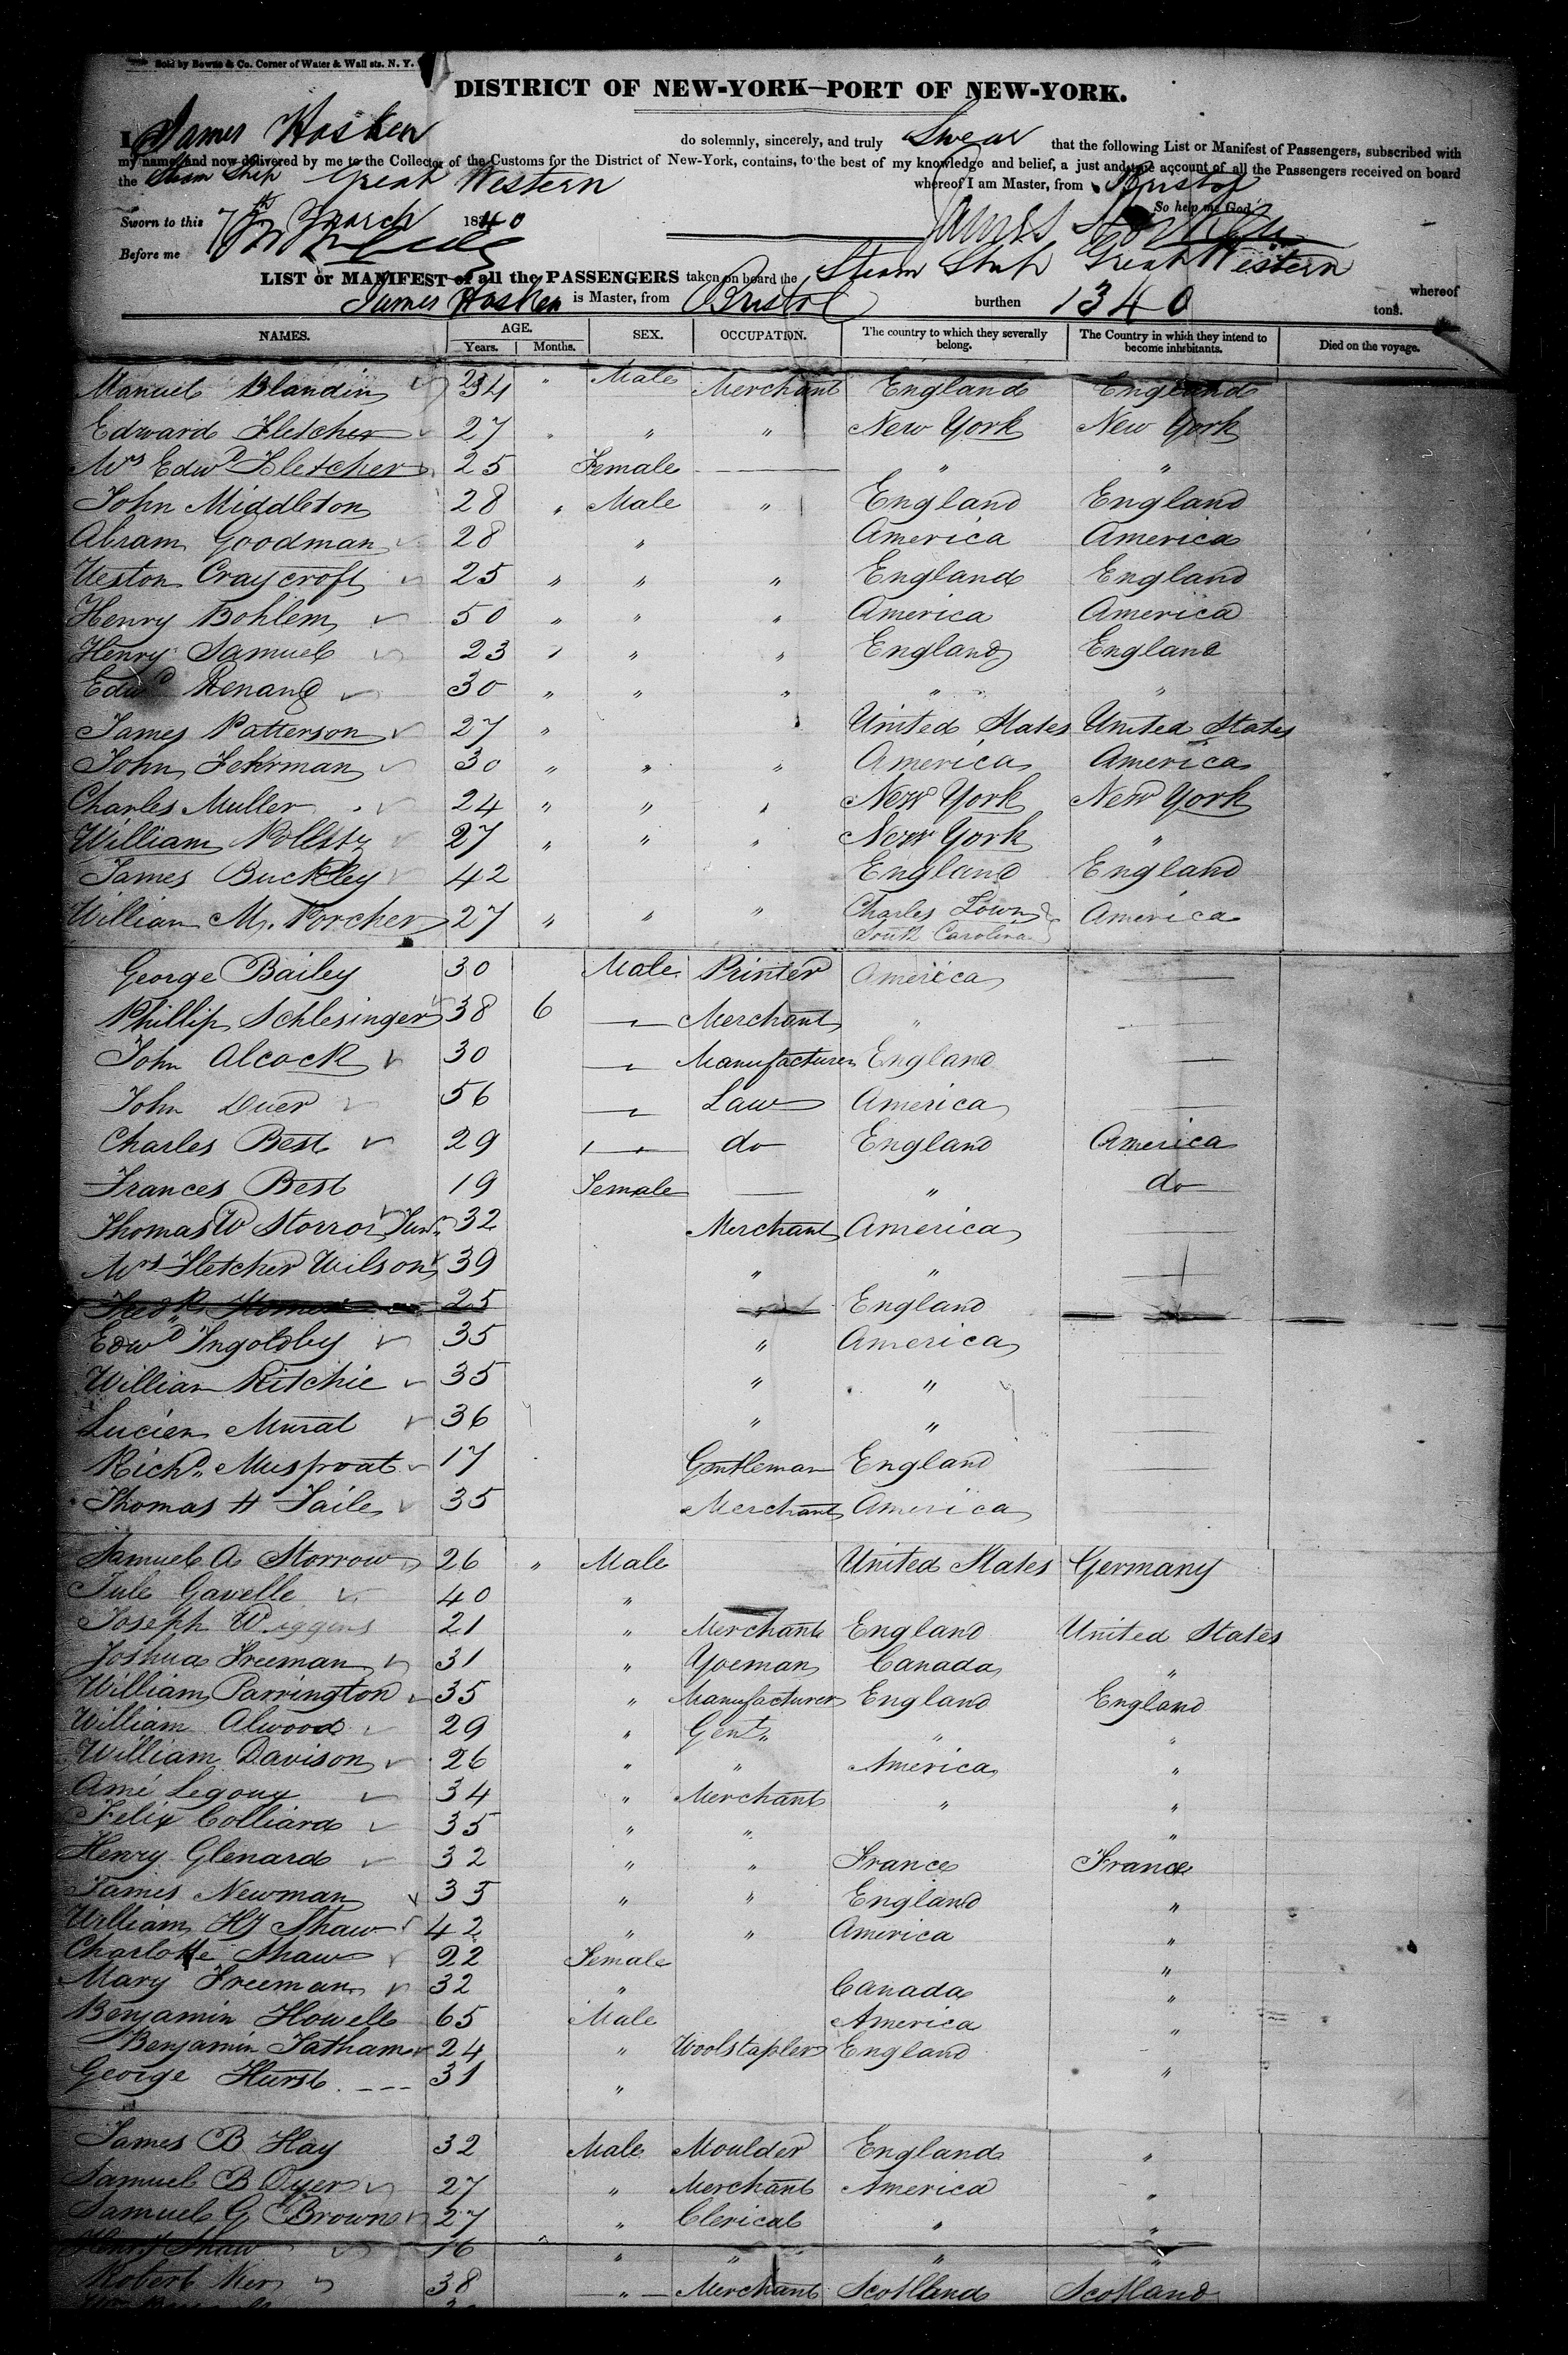 Sold by Bowne & Co. Corner of Water & Wall sts. N. Y.
DISTRICT OF NEW-YORK—PORT OF NEW-YORK.
I James Hosken do solemnly, sincerely, and truly Swear that the following List or Manifest of Passengers, subscribed with
my name, and now delivered by me to the Collector of the Customs for the District of New-York, contains, to the best of my knowledge and belief, a just and true account of all the Passengers received on board
the Steam Ship Great Western whereof I am Master, from Bristol
Sworn to this 7th March 1840 So help me God
Before me James Hosken
LIST or MANIFEST of all the PASSENGERS taken on board the Steam Ship Great Western whereof
James Hosken is Master, from Bristol burthen 1340 tons.
NAMES. AGE. Years. Months. SEX. OCCUPATION. The country to which they severally belong. The Country in which they intend to become inhabitants. Died on the voyage.
Manuel Blandin 34 " Male Merchant England England
Edward Fletcher 27 " " " New York New York
Mrs Edwd Fletcher 25 Female — " "
John Middleton 28 " Male " England England
Abram Goodman 28 " America America
Weston Craycroft 25 " " " England England
Henry Bohlem 50 " " " America America
Henry Samuel 23 " " " England England
Edwd 30 " " " " "
James Patterson 27 " " United States United States
John Fehrman 30 " " " America America
Charles Muller 24 " " " New York New York
William 27 " " " New York "
James Buckley 42 England England
William M. Porcher 27 " " " Charles Town South Carolina America
George Bailey 30 Male Printer America —
Phillip Schlesinger 38 6 — Merchant " —
John Alcock 30 — Manufacturer England —
John Duer 56 — Law America —
Charles Best 29 — do England America
Frances Best 19 Female — " do
Thomas W Storrow Junr 32 Merchant America —
Mrs Fletcher Wilson 39 " " —
25 " England —
Edwd Ingoldby 35 " America —
William Ritchie 35 " " —
Lucien Murat 36 " " —
Richd Musprat 17 Gentleman England —
Thomas H Faile 35 Merchant America —
Samuel A Storrow 26 " Male United States Germany
Jule Gavelle 40 "
Joseph Wiggens 21 " Merchant England United States
Joshua Freeman 31 " Yoeman Canada "
William Parrington 35 " Manufacturer England England
William Alwood 29 " Gent " "
William Davison 26 " " America "
Amé Legoux 34 " Merchant " "
Felix Colliard 35 " " "
Henry Glenard 32 " " France France
James Newman 35 " " England "
William Hy Shaw 42 " " America "
Charlotte Shaw 22 Female "
Mary Freeman 32 " Canada "
Benjamin Howell 65 Male America "
Benjamin Tatham 24 " Woolstapler England
George Hurst 31 " "
James B Hay 32 Male Moulder England "
Samuel B Dyer 27 " Merchant America "
Samuel G Brown 27 " Clerical " "
Henry Shaw 16 " " " " "
Robert Ker 38 " Merchant Scotland Scotland